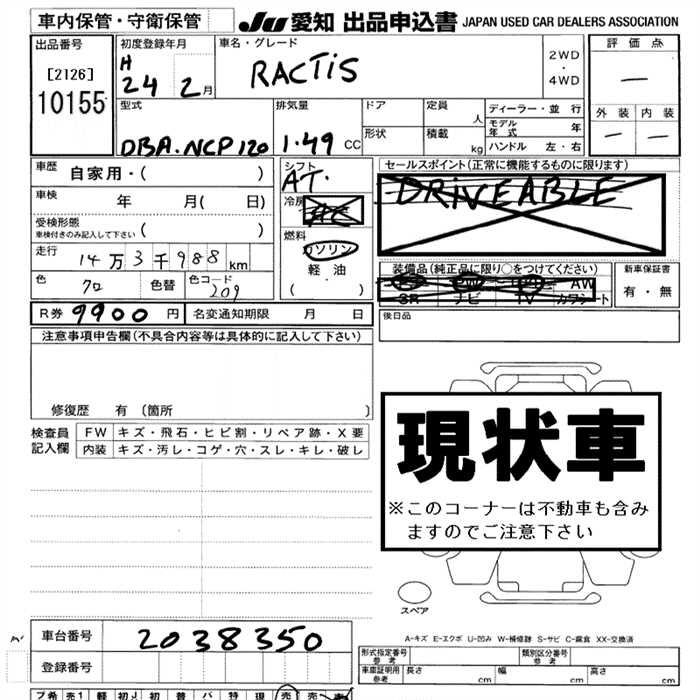 車内保管・守衛保管
JU 愛知 出品申込書 JAPAN USED CAR DEALERS ASSOCIATION
出品番号
[2126]
10155
初度登録年月
H
24 2月
車名・グレード
RACTiS
2WD
・
4WD
評価点
—
外装 内装
— —
型式
DBA・NCP120
排気量
1.49 CC
ドア
形状
定員 人
積載 kg
ディーラー・並行
モデル年式 年
ハンドル 左・右
車歴 自家用・( )
車検 年 月( 日)
受検形態
車検付きのみ記入して下さい ( )
走行
14万3千988km
色 クロ 色替
色コード
209
シフト
AT・
冷房
燃料
ガソリン
軽油
( ・ )
セールスポイント(正常に機能するものに限ります)
DRiVEABLE
装備品(純正品に限り○をつけてください)
AW
SR ナビ TV カワシート
新車保証書
有・無
R券 9900円 名変通知期限 月 日
後日品
注意事項申告欄(不具合内容等は具体的に記入して下さい)
修復歴 有(箇所 )
検査員
記入欄
FW キズ・飛石・ヒビ割・リペア跡・X要
内装 キズ・汚レ・コゲ・穴・スレ・キレ・破レ
現状車
※このコーナーは不動車も含み
ますのでご注意下さい
スペア
A-キズ E-エクボ U-凹み W-補修跡 S-サビ C-腐食 XX-交換済
車台番号 2038350
登録番号
形式指定番号
参考
類別区分番号
参考
車庫証明用
参考
長さ cm 幅 cm 高さ cm